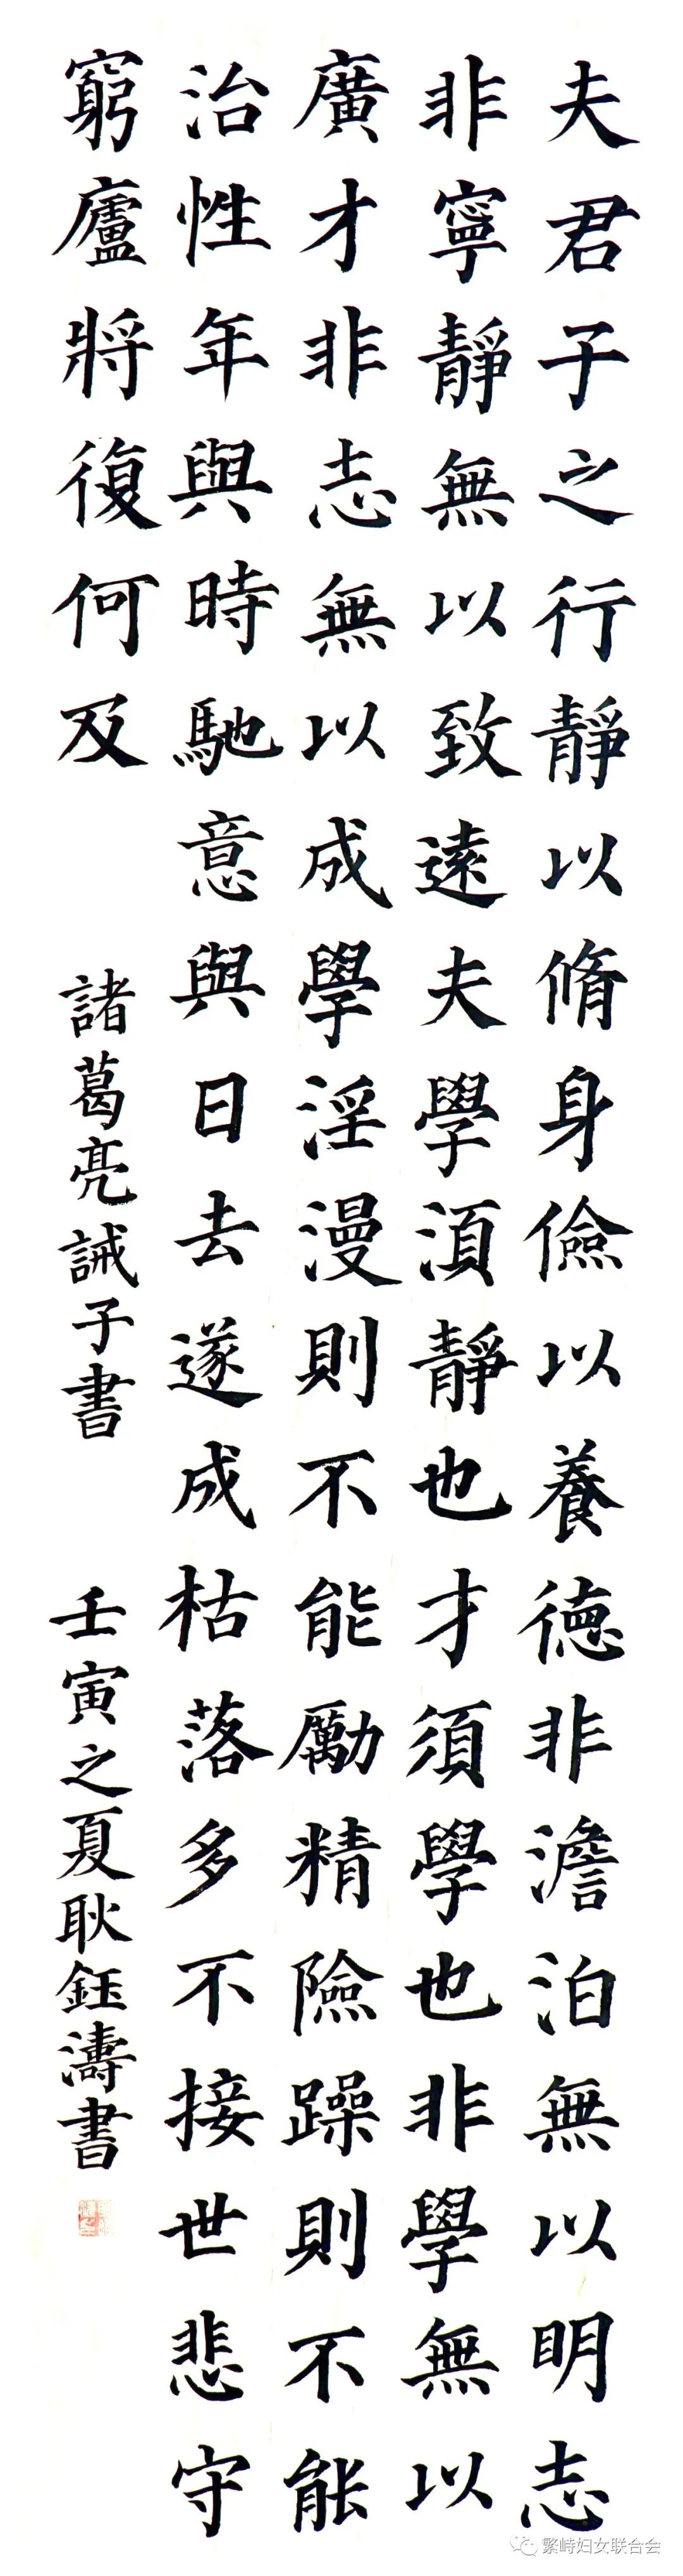 夫君子之行靜以脩身儉以養德非澹泊無以明志
非寧靜無以致遠夫學湏靜也才須學也非學無以
廣才非志無以成學淫漫則不能勵精險躁則不能
治性年與時馳意與日去遂成枯落多不接世悲守
窮廬將復何及
諸葛亮誡子書
壬寅之夏耿鈺濤書
繁峙妇女联合会